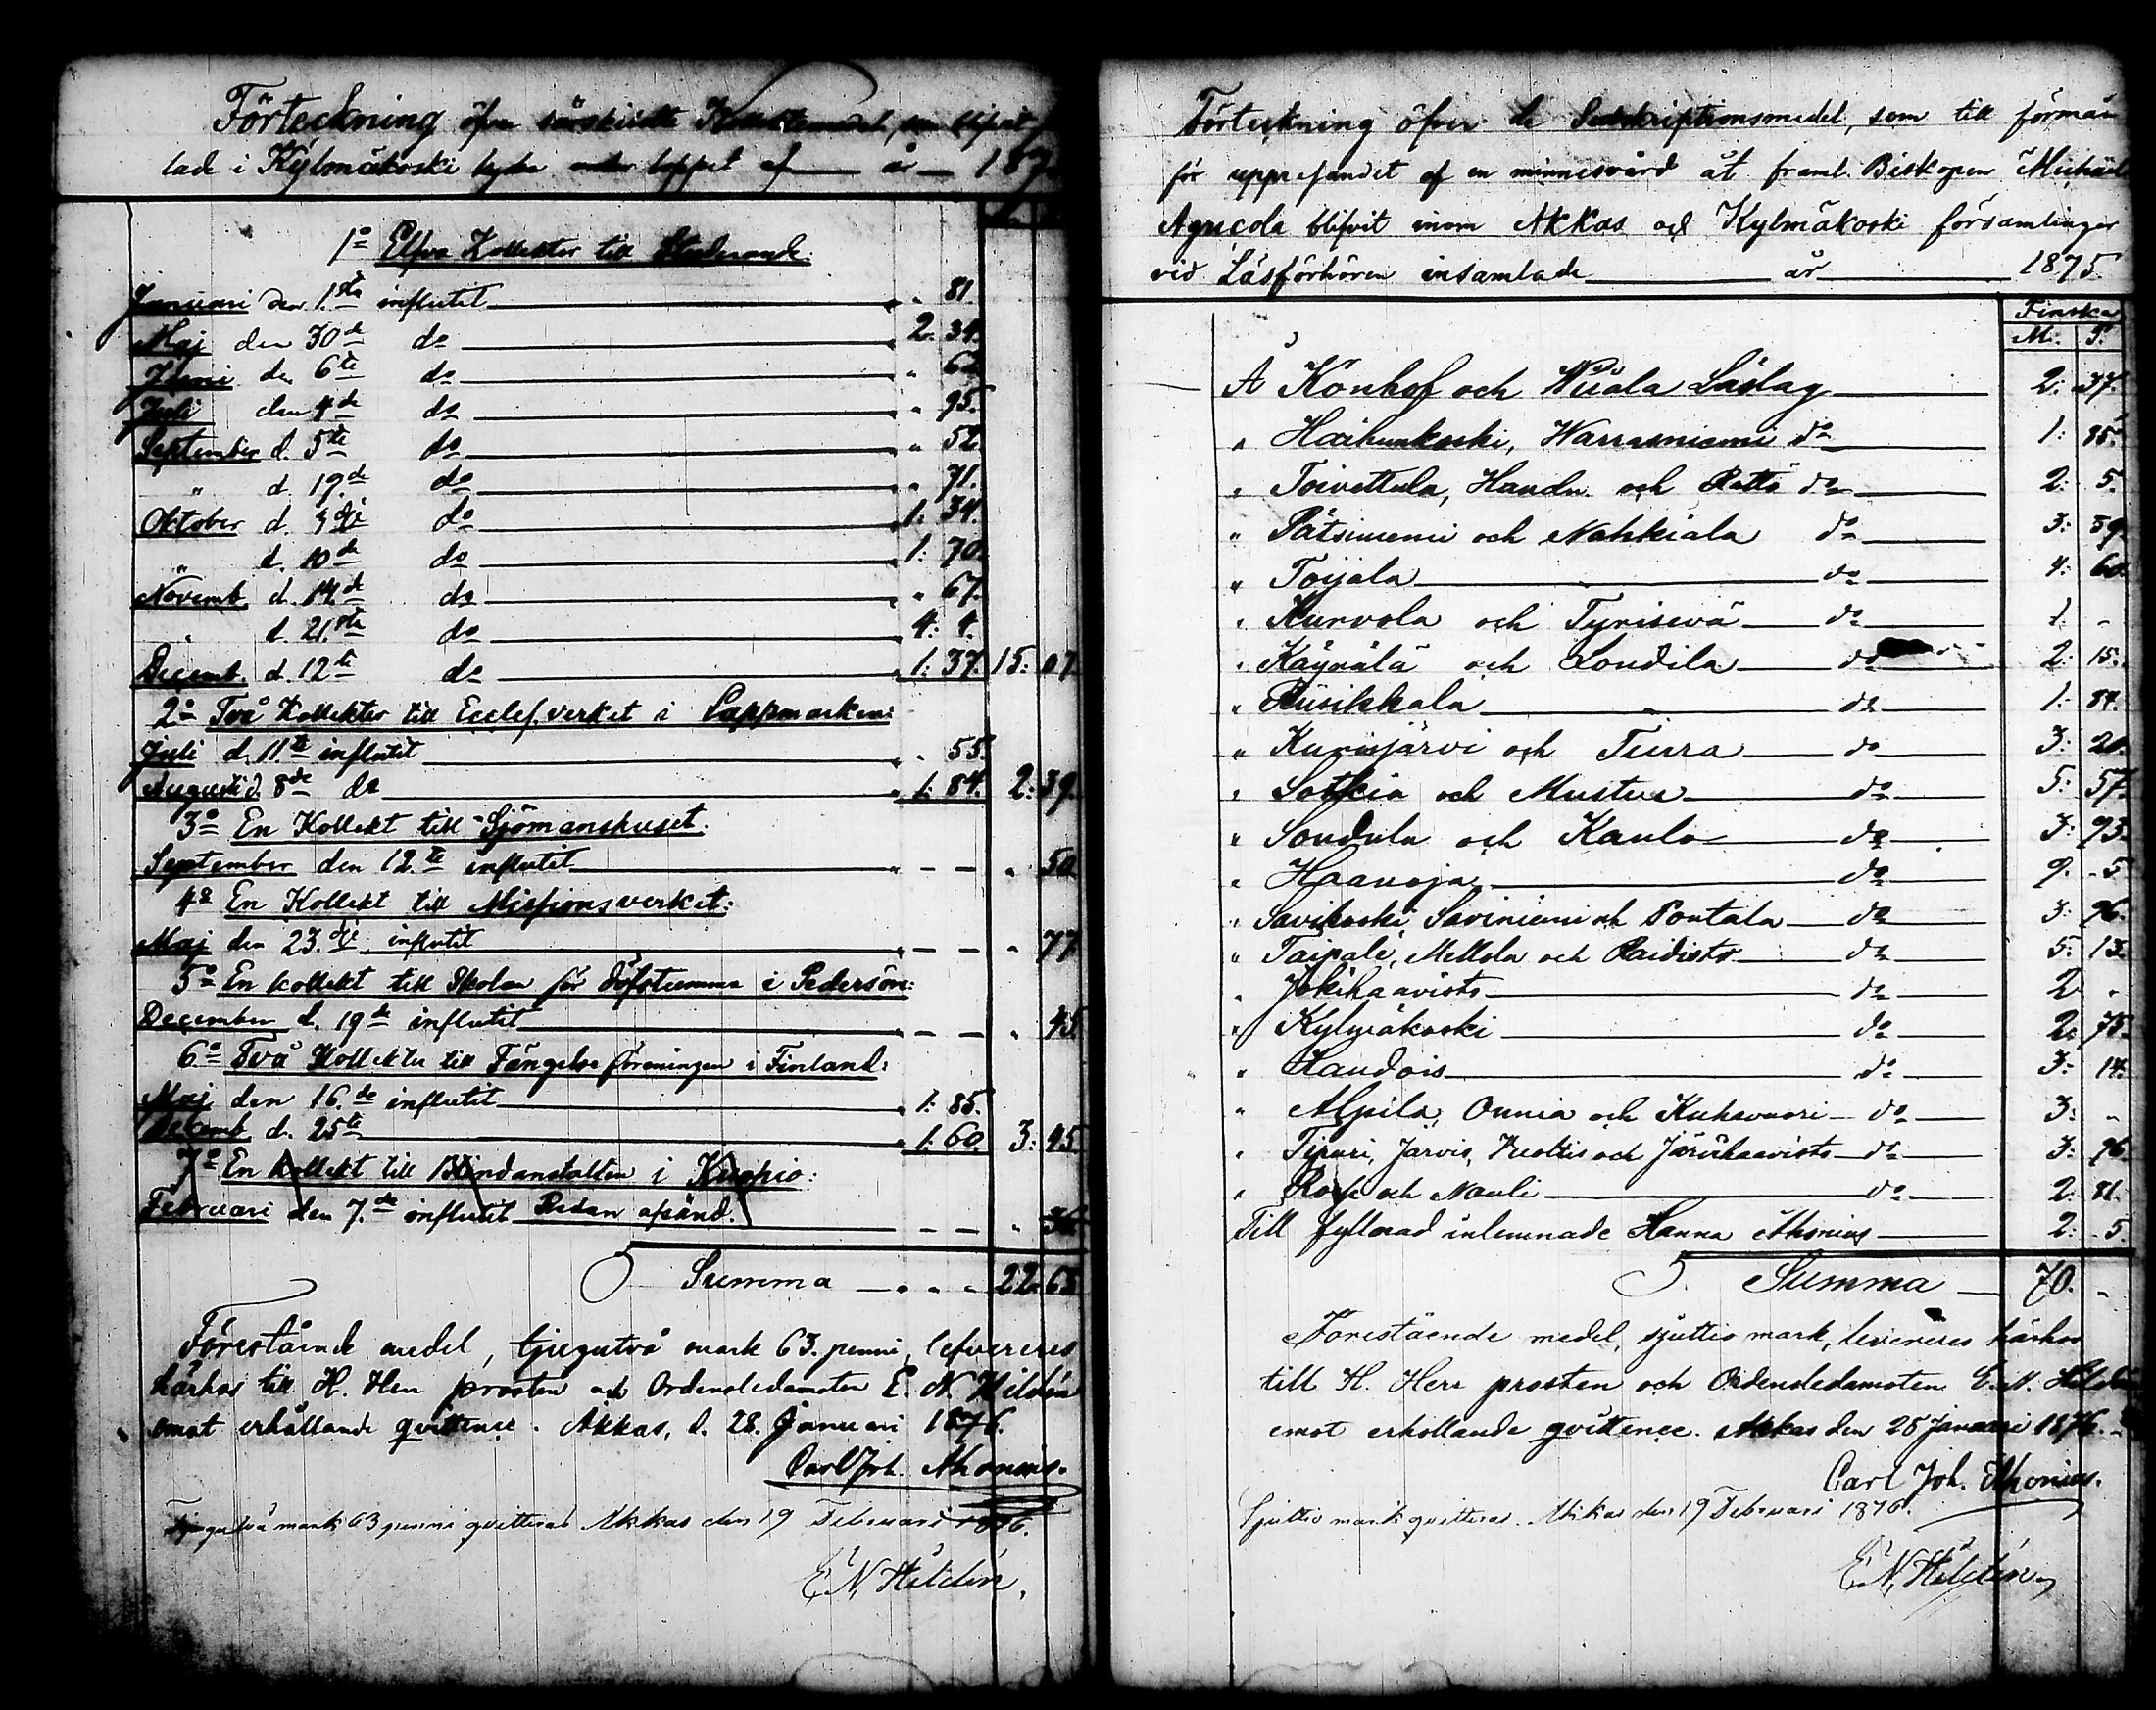 Förteckning öfver särskildte Kollektmedel, som blifvit
lade i Kylmäkoski kyrka under loppet af år 187
1º Elfva Kollekter till
Januari den 1.sta influtit " 81.
Maj den 30de do 2. 34.
Juni d. 6te do " 62.
Juli den 4de do " 95.
September d. 5te do " 52.
" d. 19.de do " 71.
Oktober d. 3dje do 1: 34.
" d. 10de do 1: 70.
Novemb. d. 14de do " 67.
" d. 21.sta do 4: 4.
Decemb. d. 12te do 1: 37. 15: 07.
2º Två Kollekter till Ecclef.verket i Lappmarken:
Juli d. 11te influtit " 55.
Augusti d. 8de do 1: 84. 2: 39.
3º En Kollekt till Sjömanshuset.
September den 12.te influtit " — — " 50.
4º En Kollekt till Missionsverket:
Maj den 23.dje influtit — — " 77.
5º En kollekt till Skolan för döfstumma i Pedersöre:
December d. 19de influtit — — " 45.
6º Två Kollekter till Fängelse föreningen i Finland:
Maj den 16.de influtit 1: 85.
Decemb. d. 25te 1: 60. 3: 45
7º En kollekt till Blindanstalten i Kuopio:
Februari den 7.de influtit Redan afsänd. — — " 36
Summa 22: 63
Förestående medel, tjugutvå mark 63. penni, lefvereres
härhos till H. Herr prosten och Ordensledamoten E. N. Hildén
emot erhållande qvittence. Akkas, d. 28. Januari 1876.
Carl Joh. Ahonius.
Tjugutvå mark 63 penni qvitteras Akkas den 19 Februari 1876.
E. N. Hildén.
Förteckning öfver de Subskriptionsmedel, som till förmån
för uppresandet af en minnesvård åt framl. Biskopen Michael
Agricola blifvit inom Akkas och Kylmäkoski församlingar
vid Läsförhören insamlade år 1875.
Finska
M: P.
Å Konhof och Wiiala Läslag 2: 37.
" Haihunkoski, Warrasniemi do 1: 85.
" Toivettula, Handu och Rattö do 2: 5.
" Pätsiniemi och Nahkiala do 3: 59.
" Toijala do 4: 60.
" Kurvola och Tyrisevä do 1. -
" Käynälä och Loudila do 2: 15.
" Riisikkala do 1: 84.
" Kurisjärvi och Tiurra do 3: 20.
" Sotkia och Mustue do 5: 57.
" Soudula och Kaulo do 3: 93.
" Haanoja do 9. - 5
" Savikoski, Saviniemi och Pontala do 3: 96.
" Taipale, Mellola och Raidisto do 5: 13.
" Jokihaavisto do 2 "
" Kylmäkoski do 2: 75.
" Kandois do 3: 14.
" Alpila, Onnia och Kuhavuori do 3: "
" Tipuri, Jarvis, Huoltis och Järvihaavisto do 3: 96.
" och Nauli do 2: 81.
Till fyllnad inlemnade Hanna Ahonius 2: - 5
Summa 70. "
Förestående medel, sjuttio mark, levereres härhos
till H. Herr prosten och Ordensledamoten E. N. Hildén
emot erhollande qvittence. Akkas den 28 Januari 1876.
Carl Joh. Ahonius.
Sjuttio mark qvitteras. Akkas den 19 Februari 1876.
E. N. Hildén